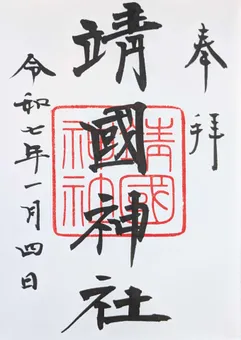 奉拝
靖國神社
靖國神社
令和七年一月四日